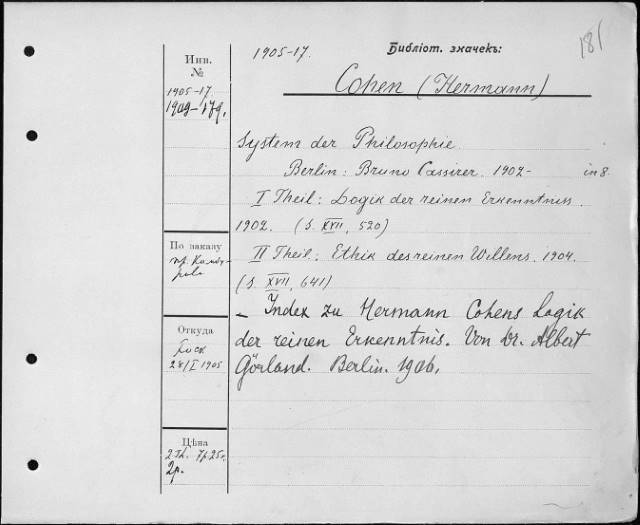 Инв.
№
1905-17.
1909-179.
По заказу
пр.
Откуда
28/I 1905
Цѣна
2 Th. 7р.25к.
2р.
1905-17.
Библіот. значекъ:
181
Cohen (Hermann)
System der Philosophie.
Berlin: Bruno Cassirer. 1902- in 8.
I Theil: Logik der reinen Erkenntniss.
1902. (S. XVII, 520)
II Theil: Ethik des reinen Willens. 1904.
(S. XVII, 641)
— Index zu Hermann Cohens Logik
der reinen Erkenntnis. Von Dr. Albert
Görland. Berlin. 1906.